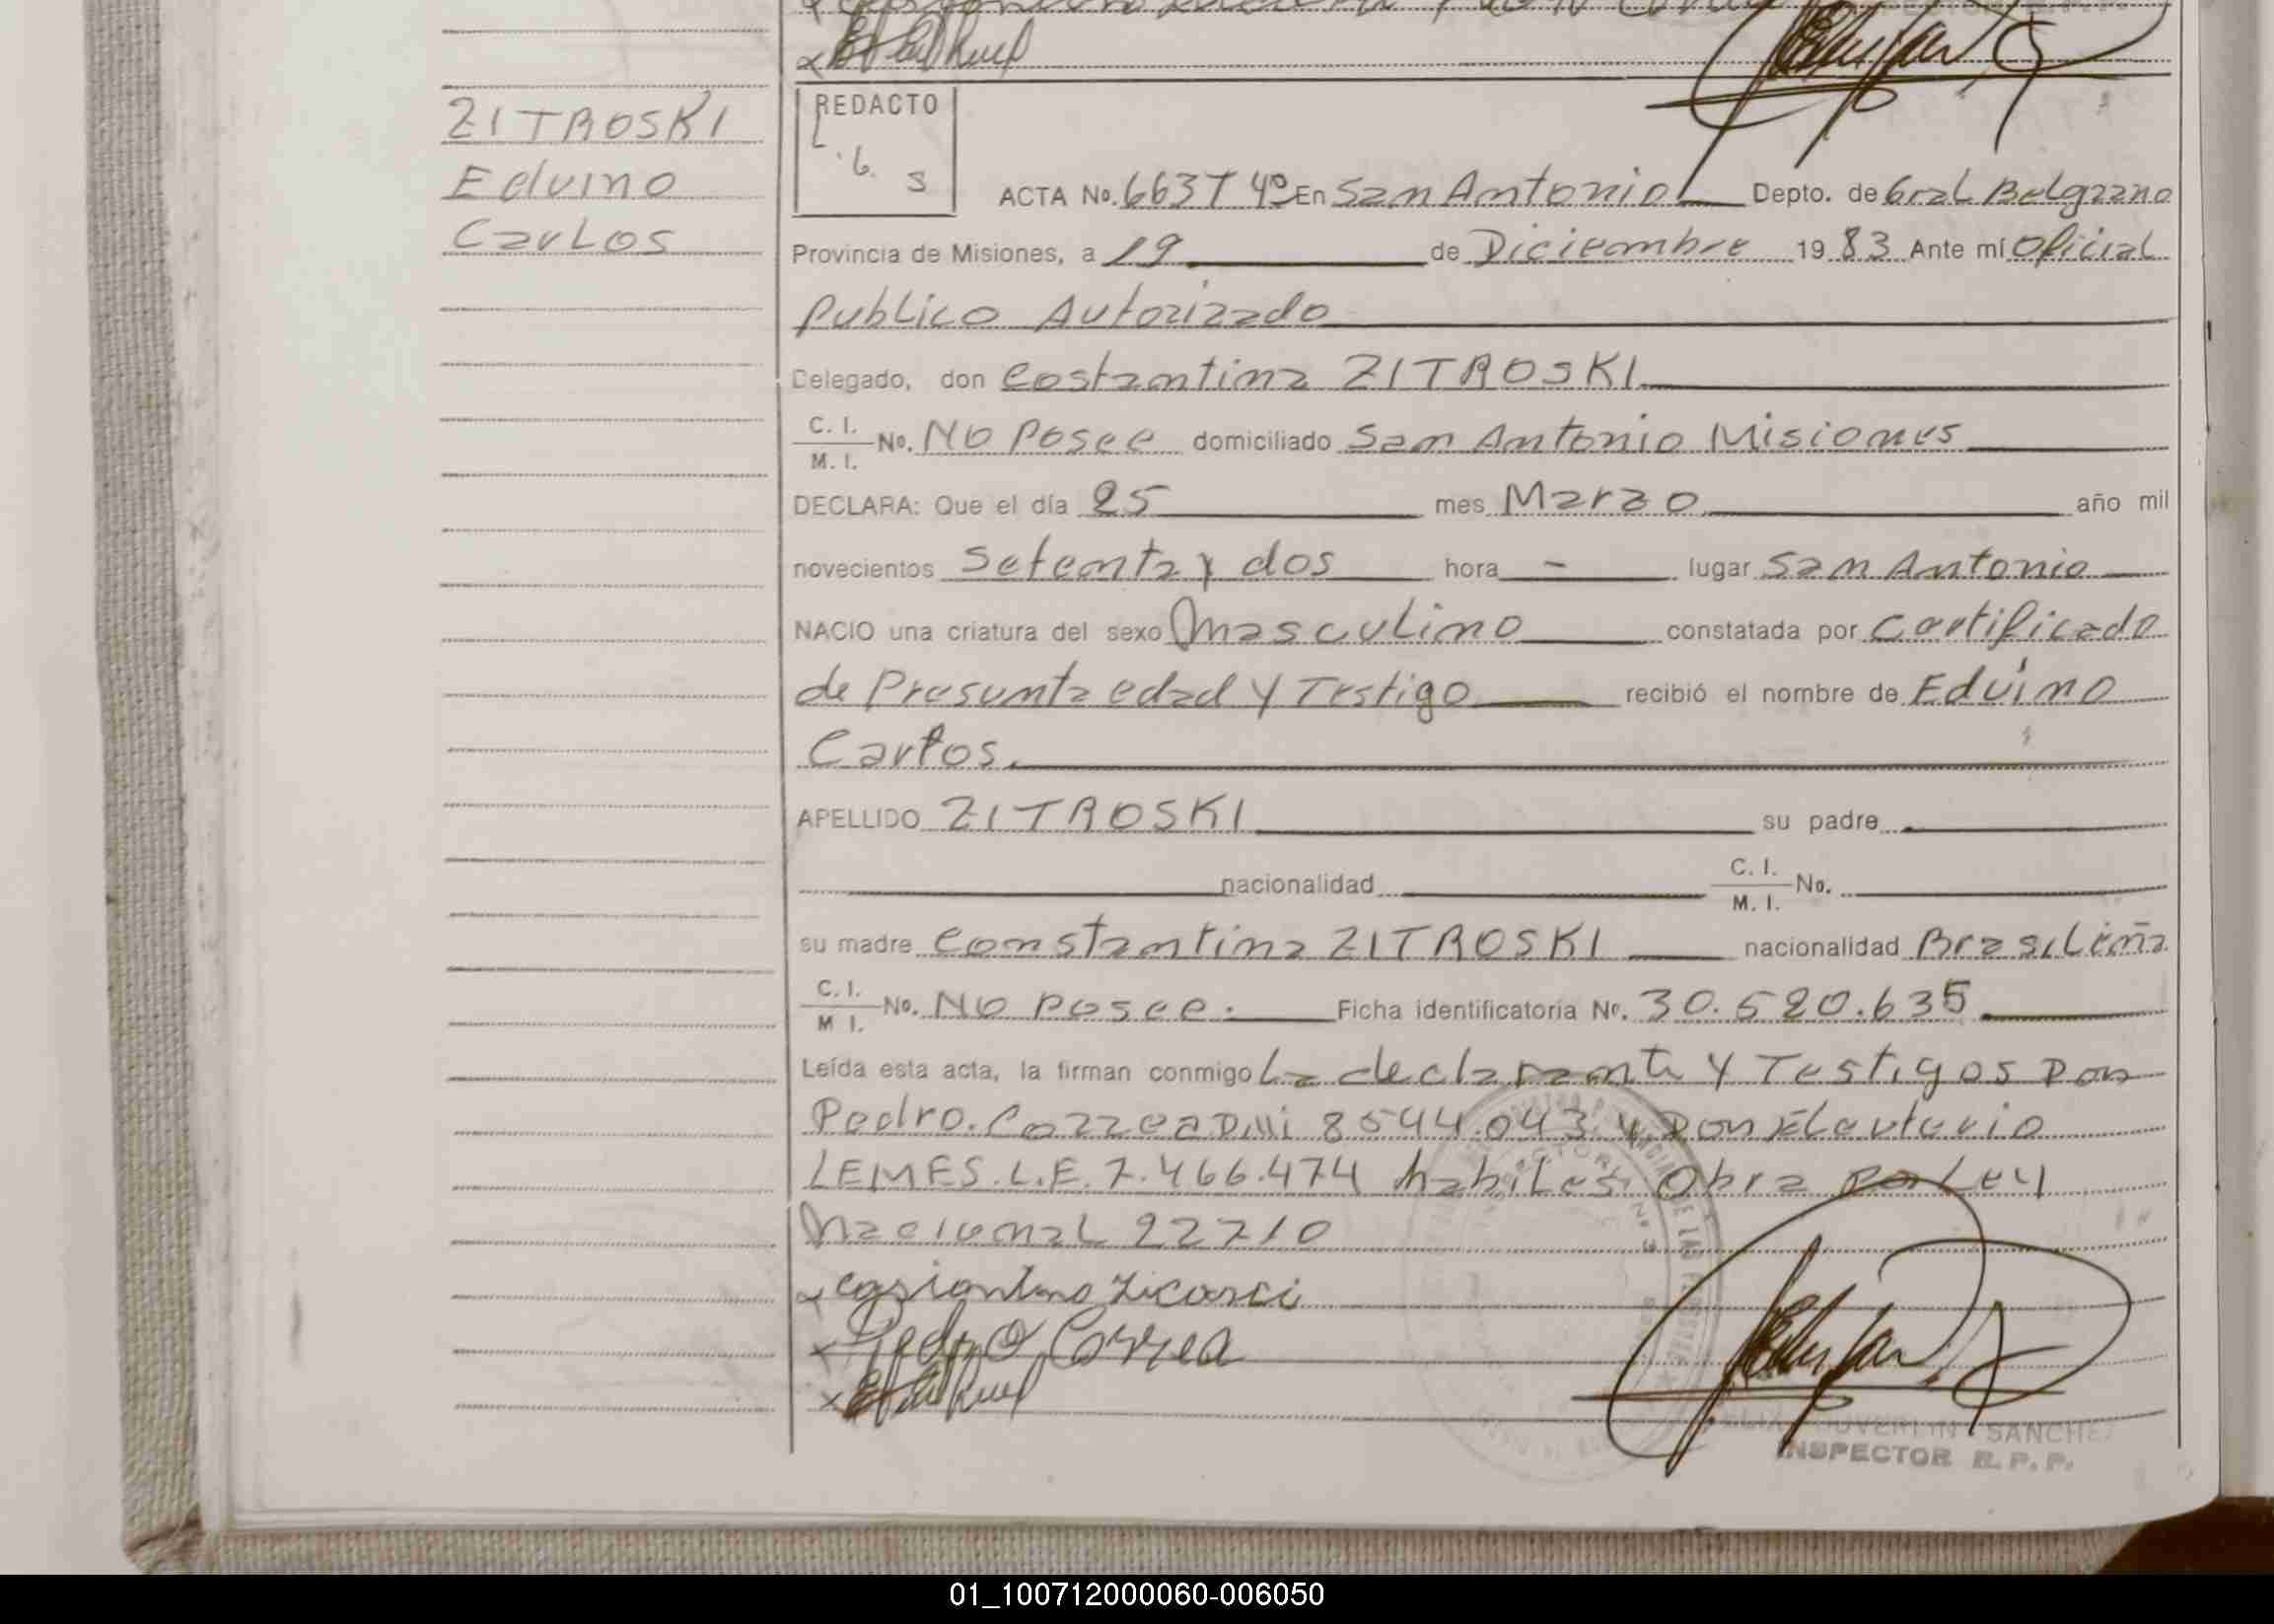 ZITROSKI
Eduino
Carlos
REDACTO
ACTA No. 663 T 4º En San Antonio Depto. de Gral Belgrano
Provincia de Misiones, a 19 de Diciembre 1983 Ante mí Oficial
Publico Autorizado
Delegado, don Costantina ZITROSKI
C. I.
M. I. No. No Posee domiciliado San Antonio Misiones
DECLARA: Que el día 25 mes Marzo año mil
novecientos Setenta y dos hora - lugar San Antonio
NACIO una criatura del sexo masculino constatada por Certificado
de Presunta edad y Testigo recibió el nombre de Eduino
Carlos.
APELLIDO ZITROSKI su padre
nacionalidad C. I.
M. I. No.
su madre Constantina ZITROSKI nacionalidad Brasileña
C. I.
M I. No. No Posee. Ficha identificatoria Nº. 30.520.635
Leída esta acta, la firman conmigo La declarante y Testigos Don
Pedro. Correa DNI 8544.043 y Don Eleuterio
LEMES. L.E. 7.466.474 habiles Obra por Ley
Nacional 22710
Pedro Correa
SANCHEZ
INSPECTOR R. P. P.
01_100712000060-006050